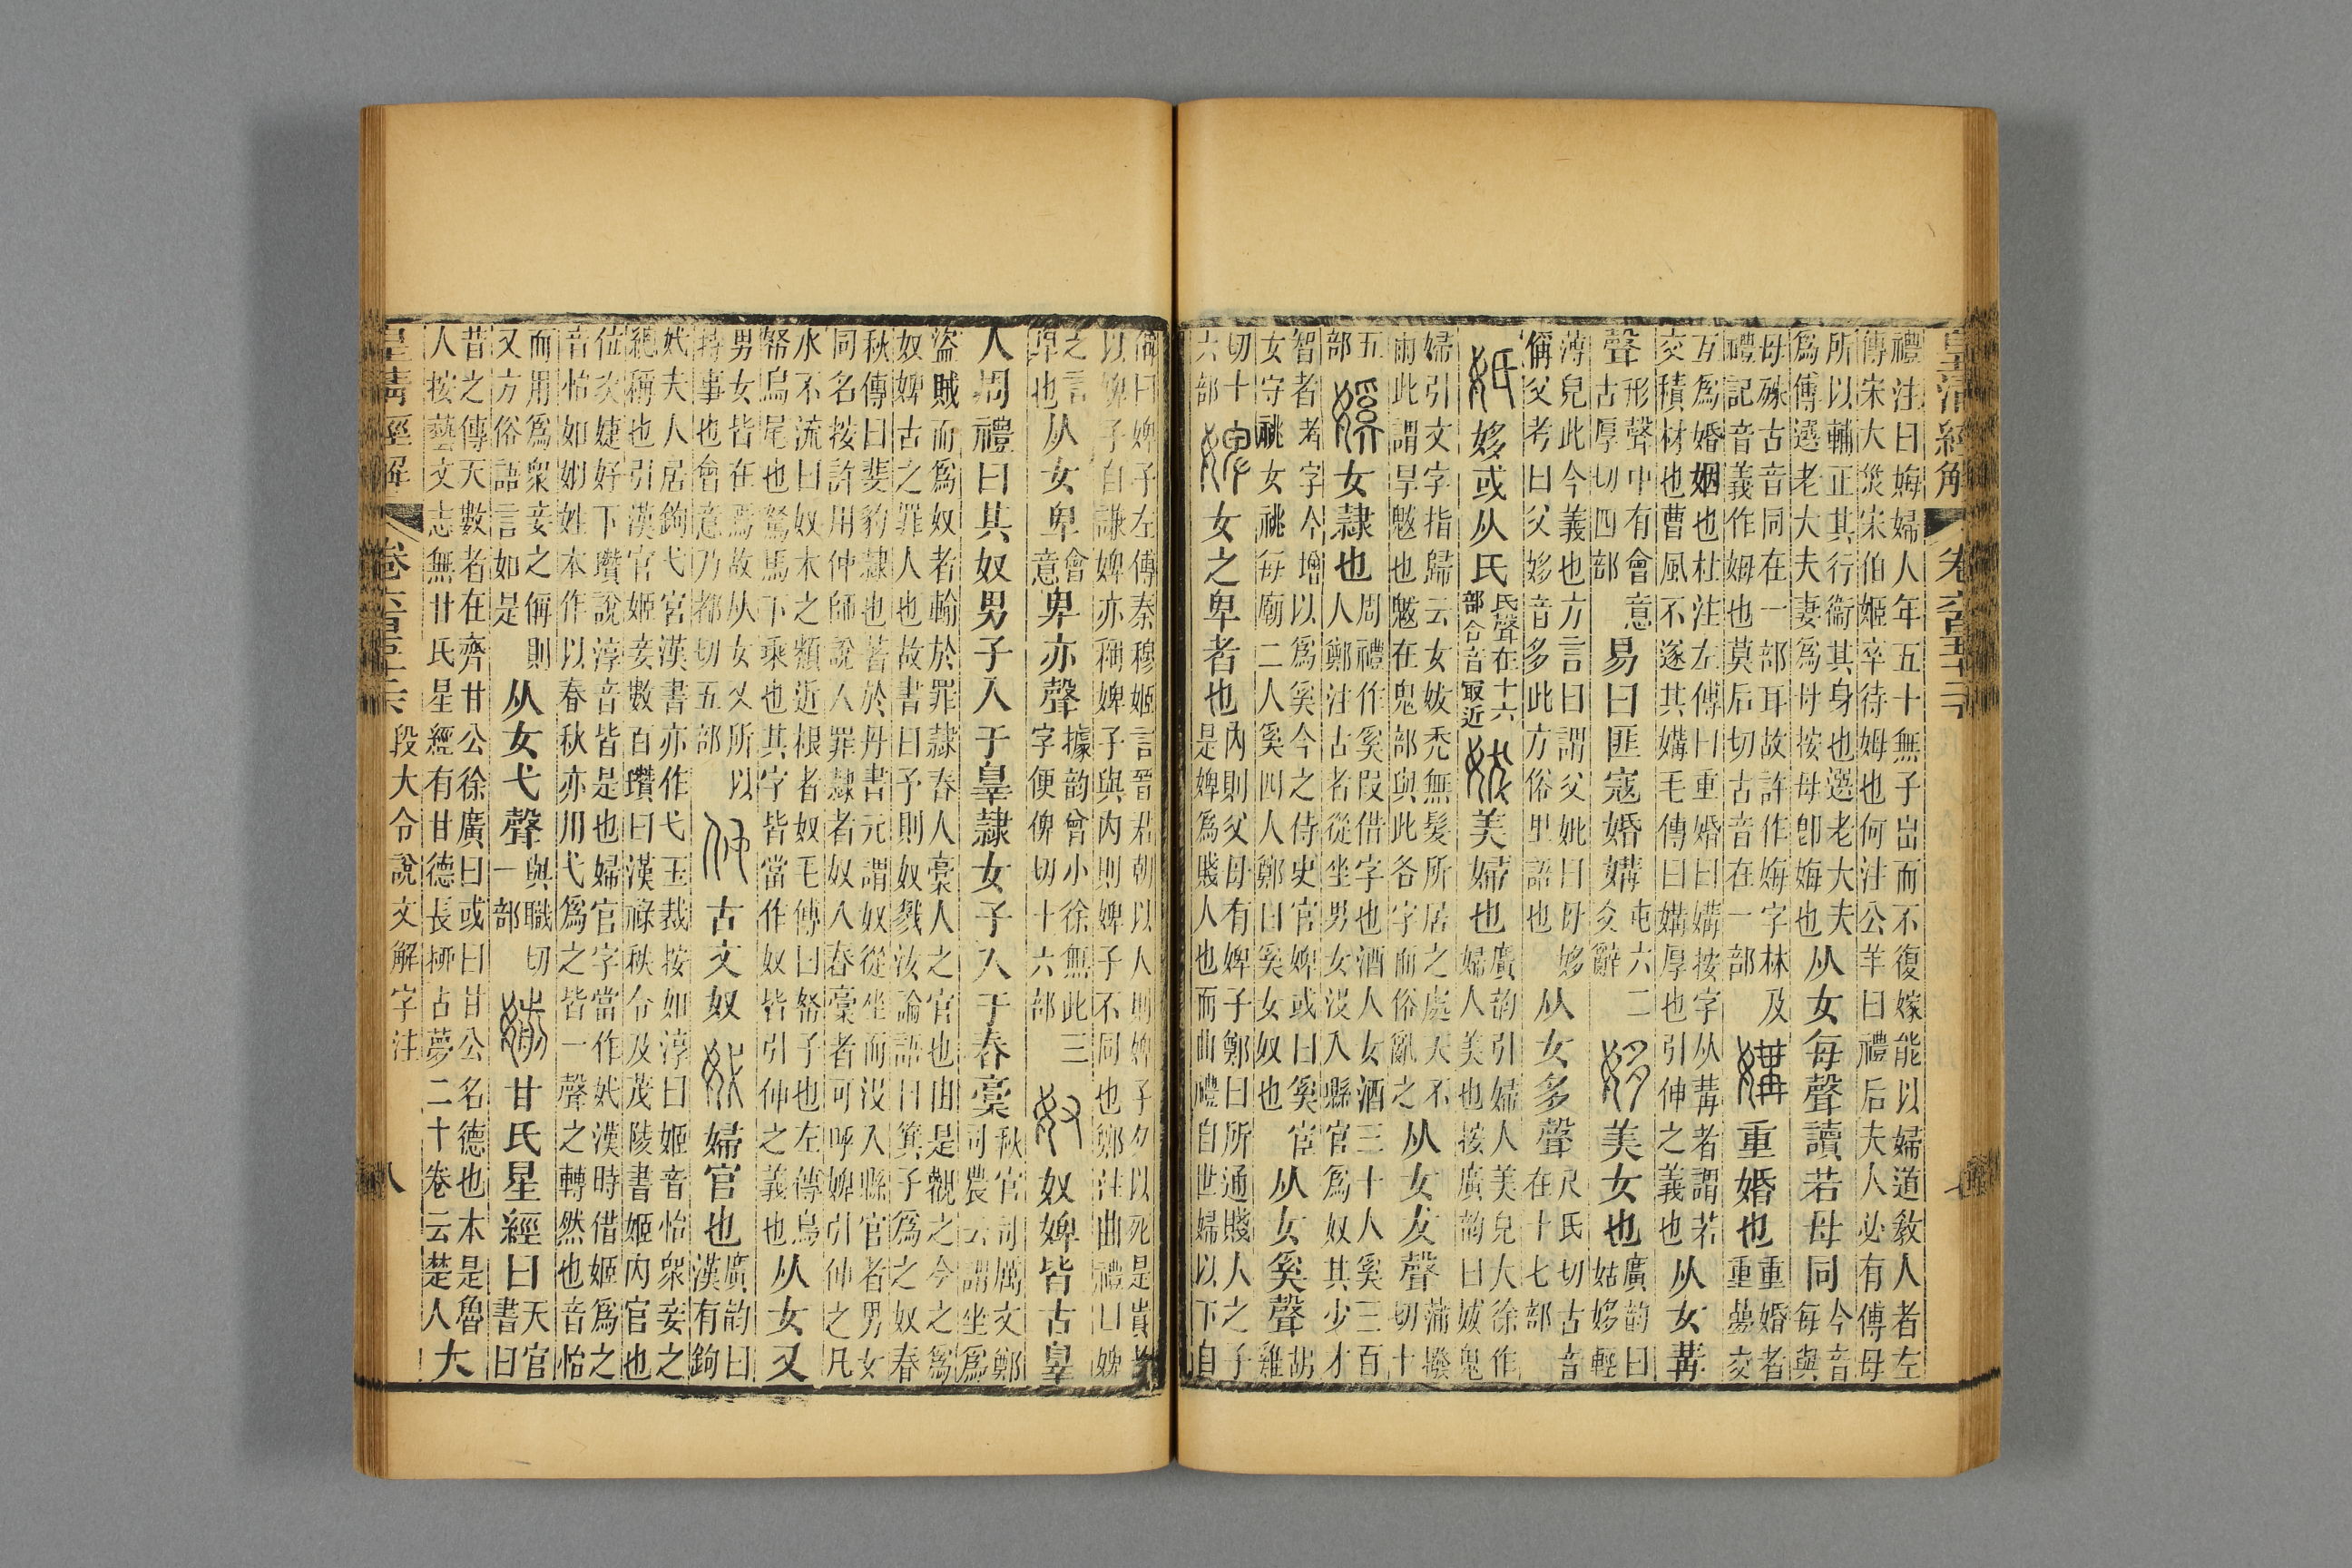 皇清經解 卷六百五十二 七
禮注曰娒婦人年五十無子出而不復嫁能以婦道敎人者左
傳宋大災宋伯姬卒待姆也何注公羊曰禮后夫人必有傅母
所以輔正其行衞其身也選老大夫爲傅選老大夫妻爲母按母卽娒也从女每聲讀若母同今音每與
母殊古音同在一部耳故許作娒字林及禮記音義作姆也莫后切古音在一部重婚也重婚者重曡交
互爲婚姻也杜注左傳曰重婚曰媾按字从冓者謂若交積材也曹風不遂其媾毛傳曰媾厚也引伸之義也从女冓
聲形聲中有會意古厚切四部易曰匪寇婚媾屯六二爻辭美女也廣韵曰姑姼輕
薄皃此今義也方言曰謂父妣曰母姼偁父考曰父姼音多此方俗里語也从女多聲尺氏切古音在十七部
姼或从氏氏聲在十六部合音最近美婦也廣韵引婦人美皃大徐作婦人美也按廣韵曰妭鬼
婦引文字指歸云女妭禿無髮所居之處天不雨此謂旱魃也魃在鬼部與此各字而俗亂之从女犮聲蒲撥切十
五部女隸也周禮作奚叚借字也酒人女酒三十人奚三百人鄭注古者從坐男女沒入縣官爲奴其少才
智者考字今增以爲奚今之侍史官婢或曰奚宦女守祧女祧每廟二人奚四人鄭曰奚女奴也从女奚聲胡雞
切十六部女之卑者也內則父母有婢子鄭曰所通賤人之子是婢爲賤人也而曲禮自世婦以下自
偁曰婢子左傳秦穆姬言晉君朝以入則婢子夕以死是貴者
以婢子自謙婢亦稱婢子與內則婢子不同也鄭注曲禮曰婢
之言卑也从女卑會意卑亦聲據韵會小徐無此三字便俾切十六部奴婢皆古辠
人周禮曰其奴男子入于辠隸女子入于舂槀秋官司厲文鄭司農云謂坐爲
盜賊而爲奴者輸於罪隸舂人槀人之官也由是觀之今之爲
奴婢古之罪人也故書曰予則奴戮汝論語曰箕子爲之奴春
秋傳曰斐豹隸也著於丹書元謂奴從坐而沒入縣官者男女
同名按許用仲師說入罪隸者奴入舂槀者可呼婢引伸之凡
水不流曰奴木之類近根者奴毛傳曰帑子也左傳鳥帑鳥尾也駑馬下乘也其字皆當作奴皆引伸之義也从女又
男女皆在焉故从女又所以持事也會意乃都切五部古文奴婦官也廣韵曰漢有鉤
妷夫人居鉤弋宮漢書亦作弋玉裁按如淳曰姬音怡衆妾之
緫稱也引漢官姬妾數百瓚曰漢祿秩令及茂陵書姬內官也
位次婕妤下瓚說淳音皆是也婦官字當作妷漢時借姬爲之
音怡如姒姓本作以春秋亦用弋爲之皆一聲之轉然也音怡
而用爲衆妾之偁則又方俗語言如是从女弋聲與職切一部甘氏星經曰天官書曰
昔之傳天數者在齊甘公徐廣曰或曰甘公名德也本是魯人按藝文志無甘氏星經有甘德長柳占夢二十卷云楚人大
皇清經解 卷六百五十二 段大令說文解字注 八